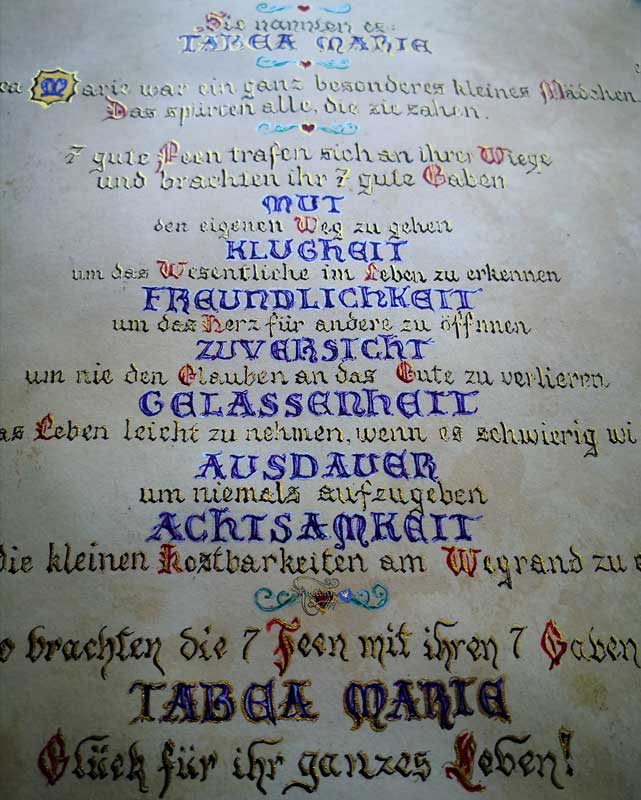 Sie nannten es:
TABEA MARIE
ea Marie war ein ganz besonderes kleines Mädchen
Das spürten alle, die sie sahen.
7 gute Feen trafen sich an ihrer Wiege
und brachten ihr 7 gute Gaben
MUT
den eigenen Weg zu gehen
KLUGHEIT
um das Wesentliche im Leben zu erkennen
FREUNDLICHKEIT
um das Herz für andere zu öffnen
ZUVERSICHT
um nie den Glauben an das Gute zu verlieren
GELASSENHEIT
as Leben leicht zu nehmen, wenn es schwierig wi
AUSDAUER
um niemals aufzugeben
ACHTSAMKEIT
die kleinen Kostbarkeiten am Wegrand zu e
o brachten die 7 Feen mit ihren 7 Gaben
TABEA MARIE
Glück für ihr ganzes Leben!